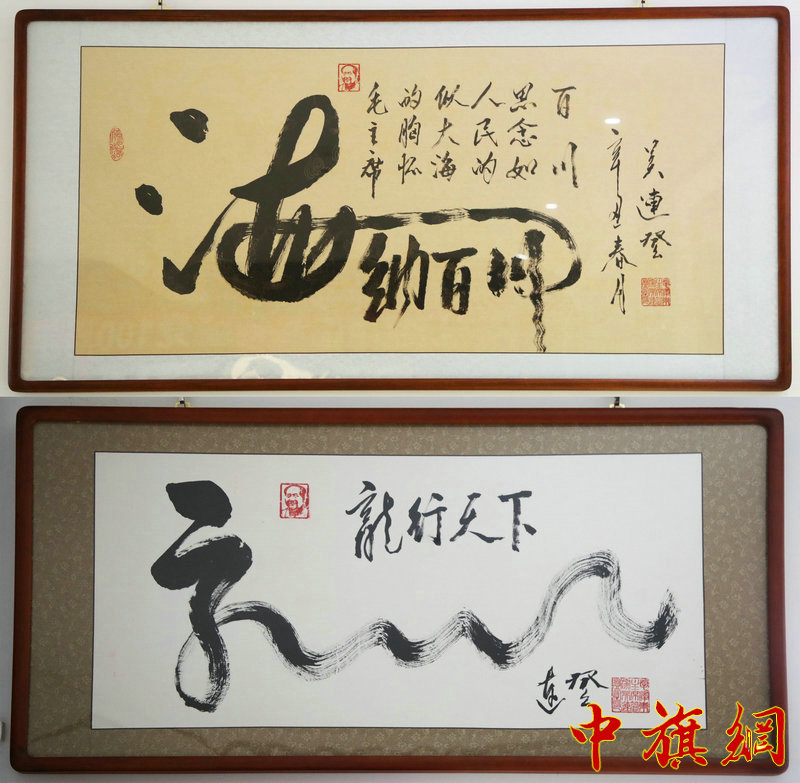 海纳百川
毛主席
的胸怀
似大海
人民的
思念如
百川
吴連登
辛丑春月
龍行天下
連登
中旗網